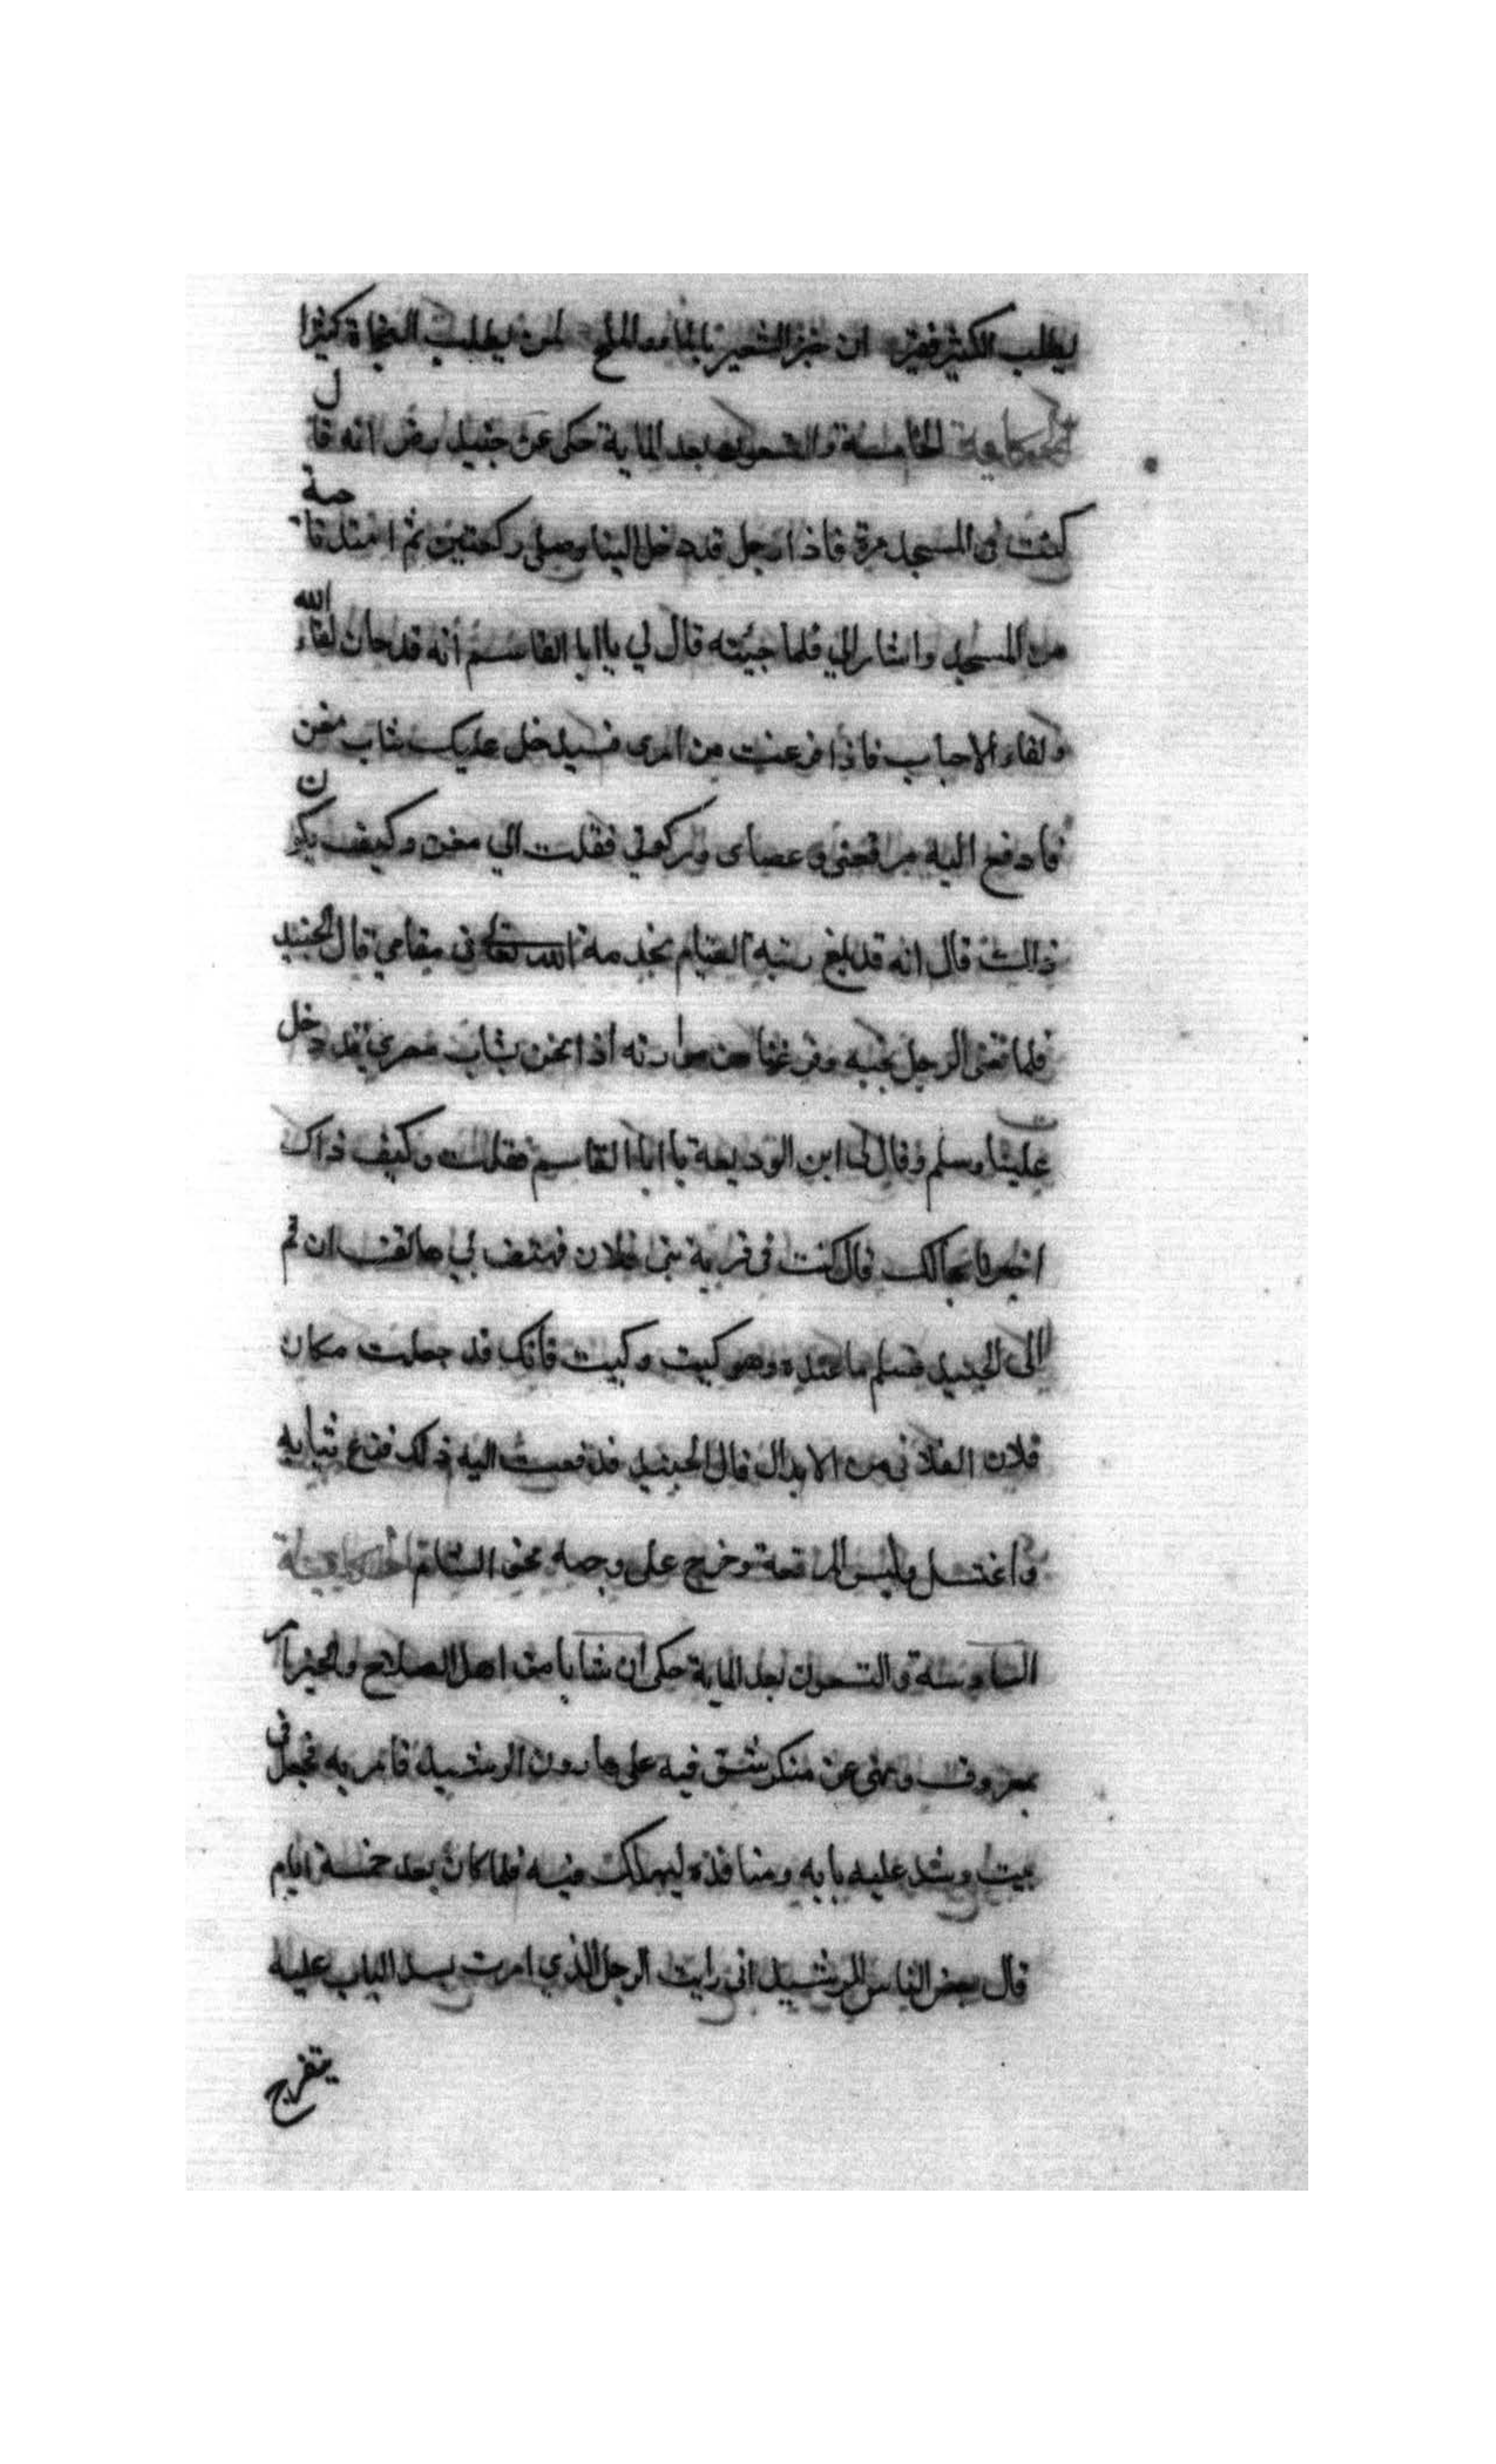 يطلب الكثير فقير ان خبز الشعير بالماء مع الملح لمن يطلب النجاة كثيرا
الحكاية الخامسة والتسعون بعد المائة حكى عن جنيد رض انه قال
كنت فى المسجد مرة فاذا رجل قد دخل الينا وصلى ركعتين ثم امتد ناحية
من المسجد واشار الي فلما جيته قال لي يا ابا القاسم انه قد حان لقاء الله
ولقاء الاحباب فاذا فرغت من امرى فسيدخل عليك شاب مغن
فادفع اليه مرقعتى وعصاى وركوتي فقلت الي مغن وكيف يكون
ذالك قال انه قد بلغ رتبه القيام بخدمة الله تعالى فى مقامي قال الجنيد
فلما قضى الرجل نحبه وفرغنا من مواراته اذا نحن بشاب مصري قد دخل
علينا وسلم وقال لى اين الوديعة يا ابا القاسم فقلت وكيف ذاك
اخبرنا بحالك قال كنت فى قرية بنى فلان فهتف بي هاتف ان قم
الى الجنيد فتسلم ما عنده وهو كيت وكيت فانك قد جعلت مكان
فلان الفلانى من الابدال قال الجنيد فدفعت اليه ذلك فنزع ثيابه
واغتسل ولبس المرقعة وخرج على وجهه نحو الشام الحكاية
السادسة والتسعون بعد المائة حكى ان شابا من اهل الصلاح والخير امر
بمعروف ونهى عن منكر فشق فيه على هارون الرشيد فامر به فجعل فى
بيت وسد عليه بابه ومنافذه ليهلك فيه فلما كان بعد خمسة ايام
قال بعض الناس للرشيد انى رايت الرجل الذي امرت بسد الباب عليه
يتفرج